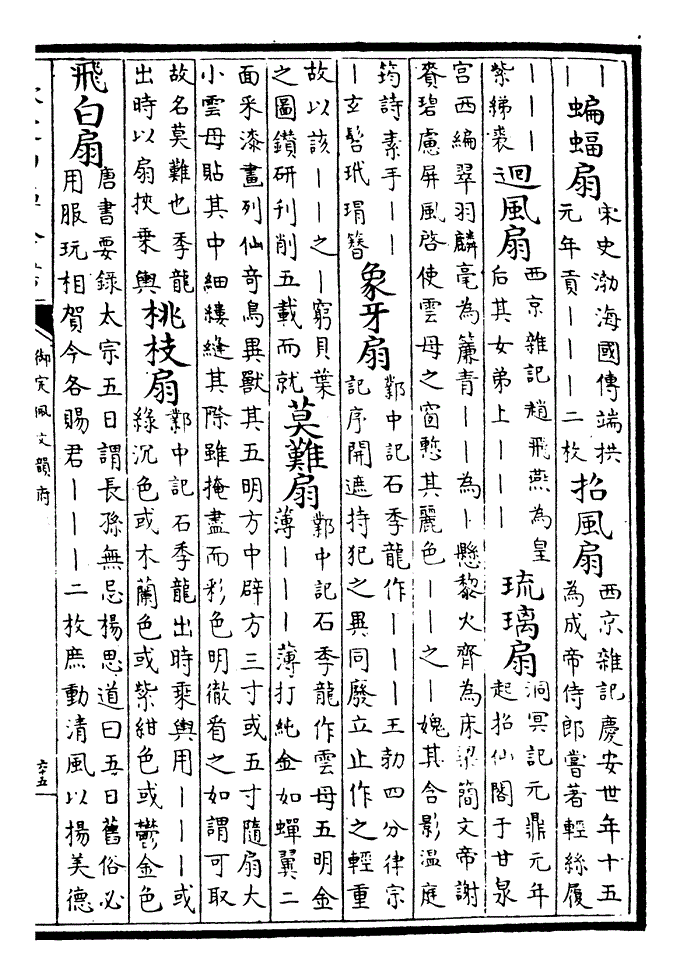 ｜
｜
蝙蝠扇
宋史渤海國傳端拱
元年貢｜｜｜二枚
招風扇
西京雜記慶安世年十五
為成帝侍郎嘗著輕絲履
｜｜｜
紫綈裘
迴風扇
西京雜記趙飛燕為皇
后其女弟上｜｜｜
琉璃扇
洞冥記元鼎元年
起招仙閣于甘泉
宮西編翠羽麟毫為簾青｜｜為｜懸黎火齊為床梁簡文帝謝
賚碧慮屏風啓使雲母之窗慙其麗色｜｜之｜媿其含影溫庭
筠詩素手｜｜
｜玄髻玳瑁簪
象牙扇
鄴中記石季龍作｜｜｜王勃四分律宗
記序開遮持犯之異同廢立止作之輕重
故以該｜｜之｜窮貝葉
之圖鑽研刊削五載而就
莫難扇
鄴中記石季龍作雲母五明金
薄｜｜｜薄打純金如蟬翼二
面采漆畫列仙奇鳥異獸其五明方中辟方三寸或五寸隨扇大
小雲母貼其中細縷縫其際雖掩盡而彩色明徹看之如謂可取
故名莫難也季龍
出時以扇挾乗輿
桃枝扇
鄴中記石季龍出時乗輿用｜｜｜或
緑沉色或木蘭色或紫紺色或鬱金色
飛白扇
唐書要錄太宗五日謂長孫無忌楊思道曰五日舊俗必
用服玩相賀今各賜君｜｜｜二枚庶動清風以揚美德
御定佩文韻府
六十五